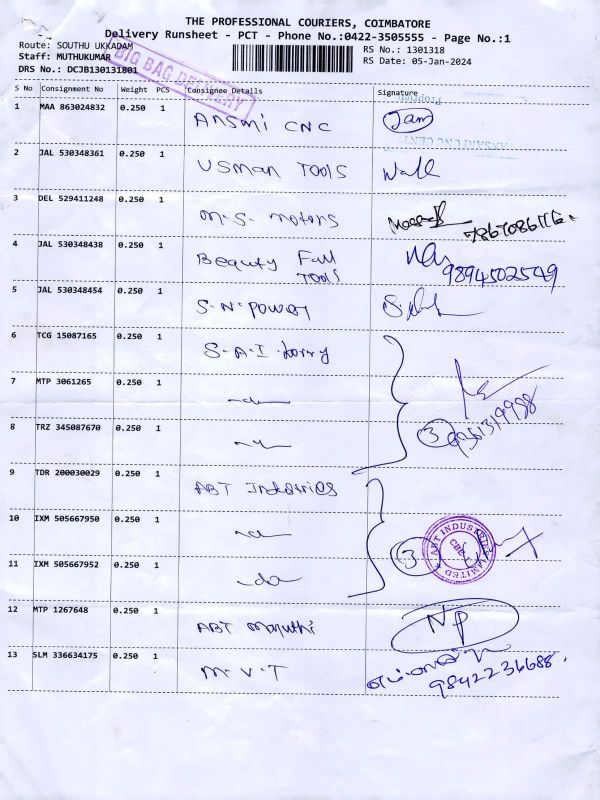 THE PROFESSIONAL COURIERS, COIMBATORE
Delivery Runsheet - PCT - Phone No.:0422-3505555 - Page No.:1
Route: SOUTHU UKKADAM
RS No.: 1301318
Staff: MUTHUKUMAR
RS Date: 05-Jan-2024
DRS No.: DCJB130131801
BIG BAG DELIVERY
S No Consignment No Weight PCS Consignee Details Signature
1 MAA 863024832 0.250 1 Ansmi CNC Jam
2 JAL 530348361 0.250 1 Usman Tools
3 DEL 529411248 0.250 1 M.S. Motors 7867086116.
4 JAL 530348438 0.250 1 Beauty Full Tools 9894502549
5 JAL 530348454 0.250 1 S.N. Power
6 TCG 15087165 0.250 1 S.A.I. Lorry
7 MTP 3061265 0.250 1
8 TRZ 345087670 0.250 1 3
9 TDR 200030029 0.250 1 ABT Industries
10 IXM 505667950 0.250 1
3 ABT INDUSTRIES LIMITED CBE-1
11 IXM 505667952 0.250 1 -do-
12 MTP 1267648 0.250 1 ABT Maruthi NP
13 SLM 336634175 0.250 1 M.V.T 9842236688.